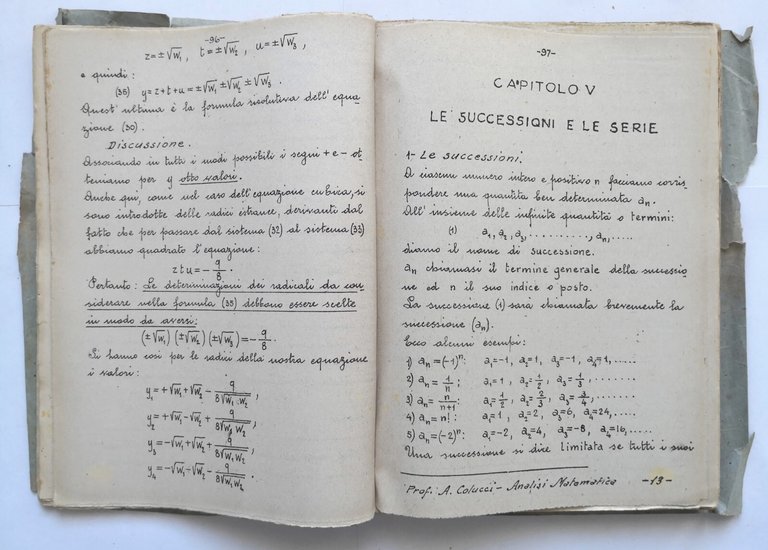 -96-
z=±√w₁, t=±√w₂, u=±√w₃,
e quindi:
(35) y=z+t+u=±√w₁ ±√w₂ ±√w₃.
Quest'ultima è la formula risolutiva dell'equa-
zione (30).
Discussione.
Associando in tutti i modi possibili i segni + e - ot-
teniamo per y otto valori.
Anche qui, come nel caso dell'equazione cubica, si
sono introdotte delle radici estranee, derivanti dal
fatto che per passare dal sistema (32) al sistema (33)
abbiamo quadrato l'equazione:
ztu=-q/8.
Pertanto: Le determinazioni dei radicali da con-
siderare nella formula (35) debbono essere scelte
in modo da aversi:
(±√w₁)(±√w₂)(±√w₃)=-q/8.
Si hanno così per le radici della nostra equazione
i valori:
y₁=+√w₁+√w₂-q/8√w₁w₂,
y₂=+√w₁-√w₂+q/8√w₁w₂,
y₃=-√w₁+√w₂+q/8√w₁w₂,
y₄=-√w₁-√w₂-q/8√w₁w₂.
-97-
CAPITOLO V
LE SUCCESSIONI E LE SERIE
1- Le successioni.
A ciascun numero intero e positivo n facciamo corris-
pondere una quantità ben determinata aₙ.
All'insieme delle infinite quantità o termini:
(1) a₁, a₂, a₃, .........., aₙ, .....
diamo il nome di successione.
aₙ chiamasi il termine generale della successio-
ne ed n il suo indice o posto.
La successione (1) sarà chiamata brevemente la
successione (aₙ).
Ecco alcuni esempi:
1) aₙ=(-1)ⁿ: a₁=-1, a₂=1, a₃=-1, a₄=1, .....
2) aₙ=1/n: a₁=1, a₂=1/2, a₃=1/3, .....
3) aₙ=n/n+1: a₁=1/2, a₂=2/3, a₃=3/4, .....
4) aₙ=n!: a₁=1, a₂=2, a₃=6, a₄=24, .....
5) aₙ=(-2)ⁿ: a₁=-2, a₂=4, a₃=-8, a₄=16, .....
Una successione si dice limitata se tutti i suoi
Prof. A. Colucci - Analisi Matematica -13-